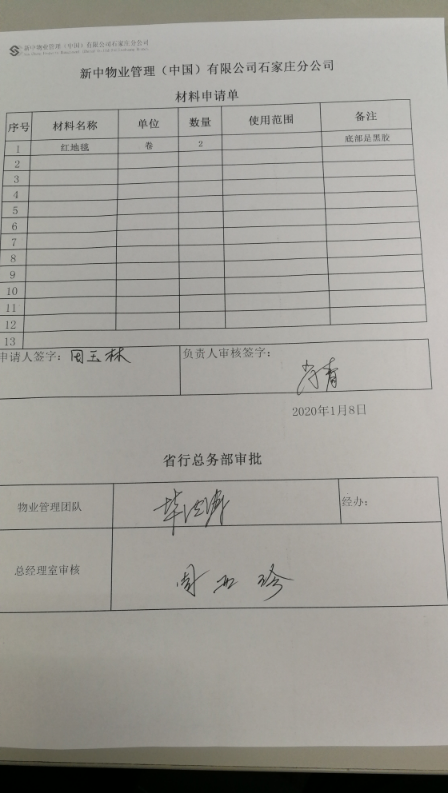 新中物业管理（中国）有限公司石家庄分公司
新中物业管理（中国）有限公司石家庄分公司
材料申请单
序号 材料名称 单位 数量 使用范围 备注
1 红地毯 卷 2 底部是黑胶
2
3
4
5
6
7
8
9
10
11
12
13
申请人签字：田玉林 负责人审核签字：
2020年1月8日
省行总务部审批
物业管理团队 经办：
总经理室审核